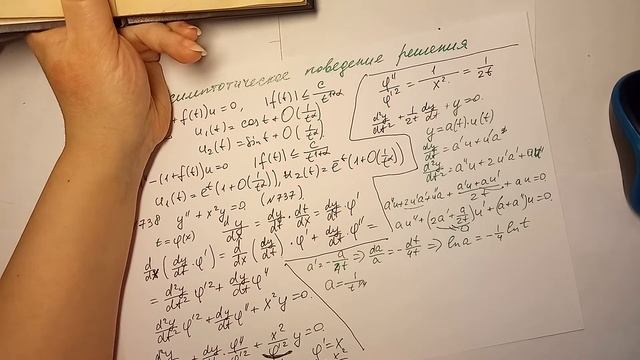 симптотическое поведение решения
+f(t)u=0, |f(t)| ≤ c/t^{1+α}
u₁(t) = cos t + O(1/t^α)
u₂(t) = sin t + O(1/t^α).
-(1+f(t))u=0 |f(t)| ≤ c/t^{1+α}
u₁(t) = e^t(1+O(1/t^α)), u₂(t) = e^{-t}(1+O(1/t^α))
(N737)
738 y''+x²y=0. dy/dx = dy/dt · dt/dx = dy/dt · φ'
t=φ(x)
d/dx(dy/dt · φ') = d/dx(dy/dt) · φ' + dy/dt φ'' =
= d²y/dt² φ'² + dy/dt φ''
d²y/dt² φ'² + dy/dt φ'' + x²y=0.
d²y/dt² + dy/dt · φ''/φ'² + x²/φ'² y=0.
φ'=x
φ''/φ'² = 1/x² = 1/2t
d²y/dt² + 1/2t dy/dt + y=0.
y=a(t)·u(t)
dy/dt = a'u+u'a
d²y/dt² = a''u+2u'a'+au''
a''u+2u'a'+u''a + (a'u+au')/2t + au=0
au''+(2a'+a/2t)u'+(a+a'')u=0.
a'=-a/4t ⇒ da/a = -dt/4t ⇒ ln a = -1/4 ln t